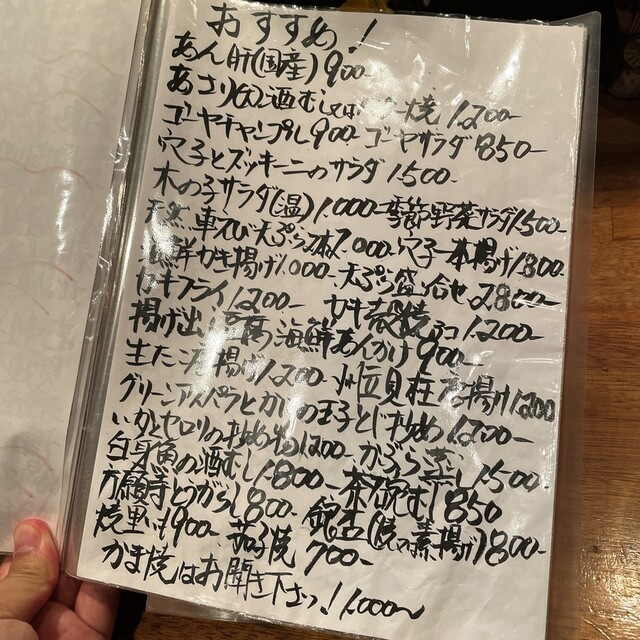 おすすめ!
あん肝(国産)900-
あさり(大)酒むし 焼 1.200-
ゴーヤチャンプル900- ゴーヤサラダ850-
穴子とズッキーニのサラダ1.500-
木の子サラダ(温)1.000- 季節野菜サラダ1.500-
天然車えび天ぷら2本1.000- 穴子一本揚げ1.800-
海鮮かき揚げ1.000- 天ぷら盛り合せ2.800-
カキフライ1.200- カキ殻焼 1.200-
揚げ出し豆腐海鮮あんかけ900-
生たこ唐揚げ1.200- 小柱貝柱 揚げ1.200
グリーンアスパラとかにの玉子とじ炒め1.200-
いかとセロリの炒め物1200- かぶら蒸し1.500-
白身魚の酒むし1.800- 茶碗むし850
万願寺とうがらし800- 銀杏(焼or素揚げ)800-
焼里いも900- 茄子焼 700-
かま焼はお聞き下さい!1.000~